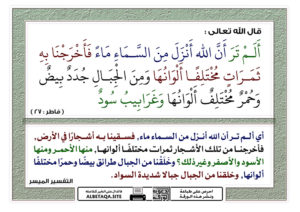 قال الله تعالى :
أَلَمْ تَرَ أَنَّ اللهَ أَنزَلَ مِنَ السَّمَاءِ مَاءً فَأَخْرَجْنَا بِهِ
ثَمَرَاتٍ مُّخْتَلِفًا أَلْوَانُهَا وَمِنَ الْجِبَالِ جُدَدٌ بِيضٌ
وَحُمْرٌ مُّخْتَلِفٌ أَلْوَانُهَا وَغَرَابِيبُ سُودٌ
( فاطر : ٢٧ )
أي ألم تر أن الله أنزل من السماء ماء, فسقينا به أشجارًا في الأرض,
فأخرجنا من تلك الأشجار ثمرات مختلفًا ألوانها, منها الأحمر ومنها
الأسود والأصفر وغير ذلك؟ وخَلَقْنا من الجبال طرائق بيضًا وحمرًا مختلفًا
ألوانها, وخلقنا من الجبال جبالا شديدة السواد.
التفسير الميسر
احرص على طباعة
ونشر هذه الورقة
ALBETAQA.SITE